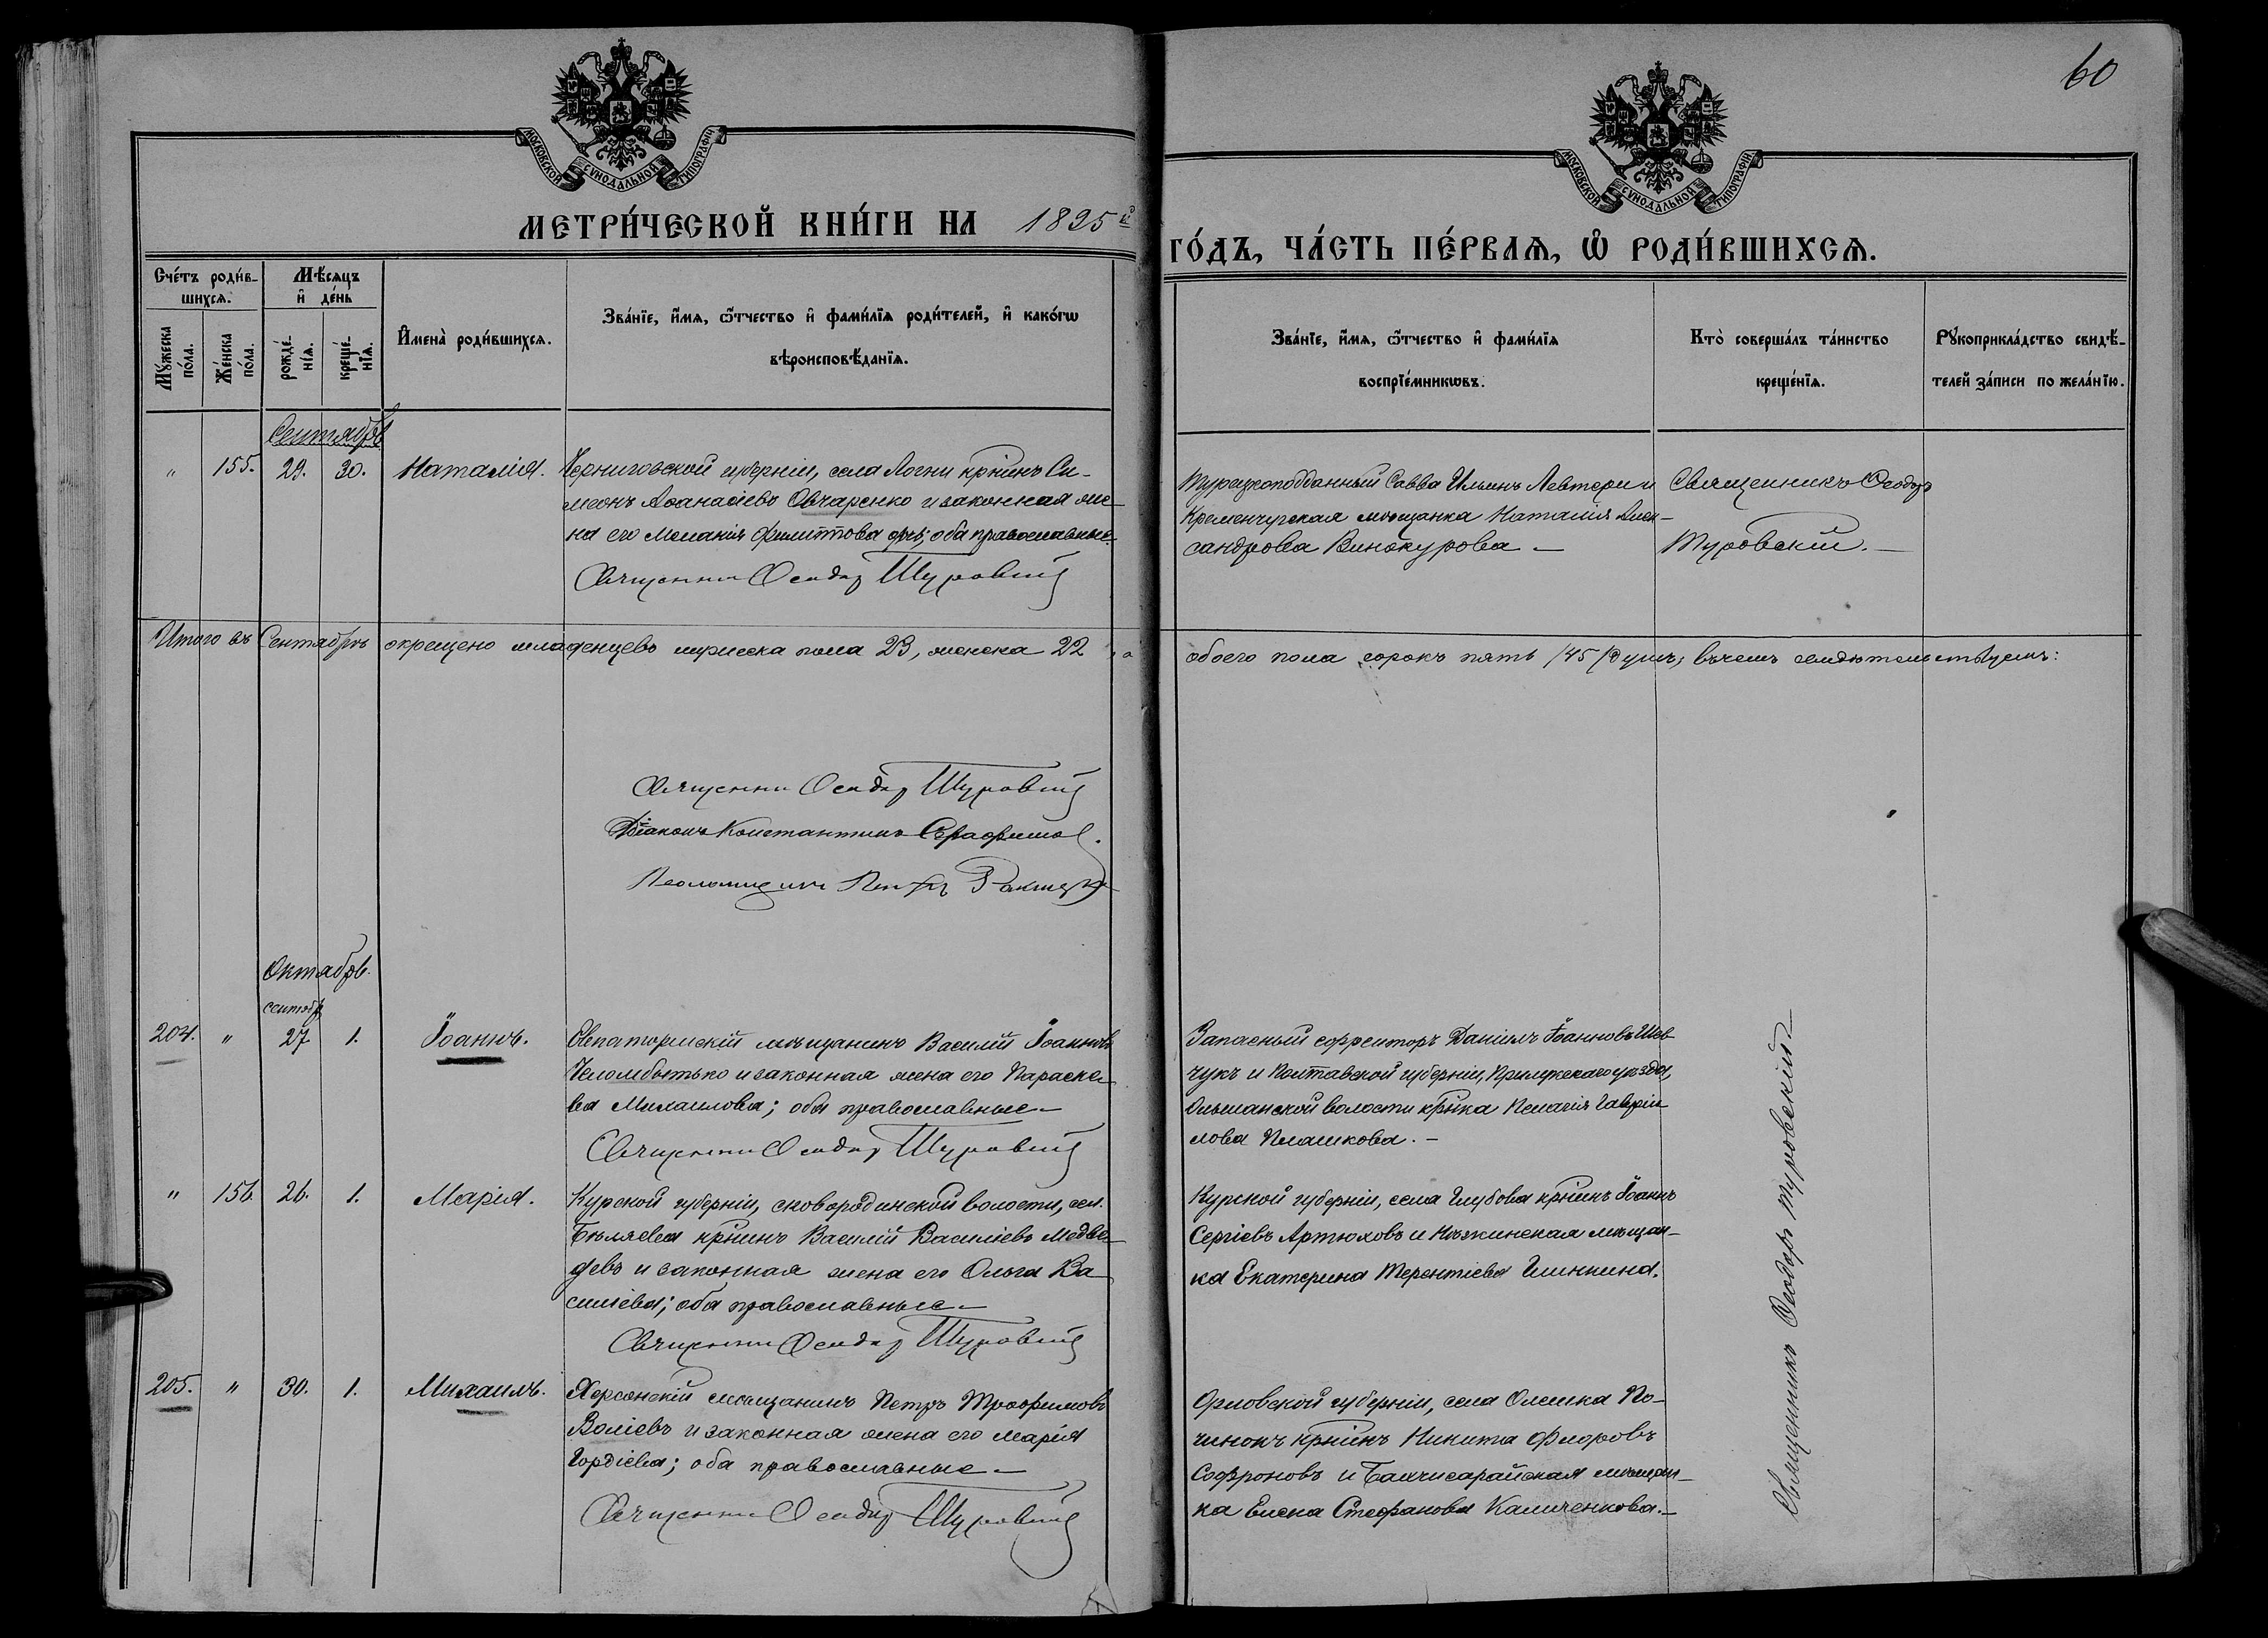 60
МОСКОВСКОЙ СѴНОДАЛЬНОЙ ТИПОГРАФІИ.
МОСКОВСКОЙ СѴНОДАЛЬНОЙ ТИПОГРАФІИ.
МЕТРИ́ЧЕСКОЙ КНИ́ГИ НА 1895 й
ГО́ДЪ, ЧА́СТЬ ПЕ́РВАЯ, Ѽ РОДИ́ВШИХСЯ.
Сче́тъ роди́в-
шихся.
Мѣ́сяцъ
и҆ де́нь
Мꙋ́жеска
по́ла.
Же́нска
по́ла.
рожде́-
нїѧ.
креще́-
нїѧ.
И҆мена̀ роди́вшихсѧ.
Зва́нїе, и҆́мѧ, ѻ҆́тчество и҆ фами́лїѧ роди́телей, и҆ како́гѡ
вѣроисповѣ́данїѧ.
Зва́нїе, и҆́мѧ, ѻ҆́тчество и҆ фами́лїѧ
воспрїе́мникѡвъ.
Кто̀ соверша́лъ та́инство
креще́нїѧ.
Рꙋкоприкла́дство свидѣ́-
телей за́писи по жела́нїю.
Сентябрь
" 155. 29. 30. Наталія. Черниговской губерніи, села Логни крнинъ Си-
меонъ Аѳанасіевъ Овчаренко и законная же-
на его Меланія Филиппова оба православные.
Священникъ Ѳеодоръ Туровскій
Турецкоподданный Савва Ильинъ Левтери и
Кременчугская мѣщанка Наталія Алек-
сандрова Винокурова. —
Священникъ Ѳеодоръ
Туровскій. —
Итого въ Сентябрѣ окрещено младенцевъ мужеска пола 23, женска 22, а
обоего пола сорокъ пять /45/ душъ; въ чемъ свидѣтельствуемъ:
Священникъ Ѳеодоръ Туровскій
Діаконъ Константинъ Серафимов.
Псаломщикъ Петръ
Октябрь.
сентябр
204. " 27 1. Іоаннъ. Евпаторійскій мѣщанинъ Василій Іоанновъ
Челомбытько и законная жена его Параске-
ва Михаилова; оба православные —
Священникъ Ѳеодоръ Туровскій
Запасный ефрейторъ Даніилъ Іоанновъ Шев-
чукъ и Полтавской губерніи, Прилукскаго уѣзда,
Ольшанской волости крнка Пелагія Гаврiи-
лова Плашкова. —
" 156. 26. 1. Марія. Курской губерніи, сковородинской волости, сел.
Бѣляева крнинъ Василій Василіевъ Медве-
девъ и законная жена его Ольга Ва-
силіева; оба православные —
Священникъ Ѳеодоръ Туровскій
Курской губерніи, села Глубова крнинъ Іоаннъ
Сергіевъ Артюховъ и Нѣжинская мѣщан-
ка Екатерина Терентіева Шинкина.
205. " 30. 1. Михаилъ. Херсонскій мѣщанинъ Петръ Трофимовъ
Воліевъ и законная жена его Марія
Гордіева; оба православные —
Священникъ Ѳеодоръ Туровскій
Орловской губерніи, села Олешка По-
чинокъ крнинъ Никита Флоровъ
Софроновъ и Бахчисарайская мѣщан-
ка Елена Стефанова Каличенкова. —
Священникъ Ѳеодоръ Туровскій —